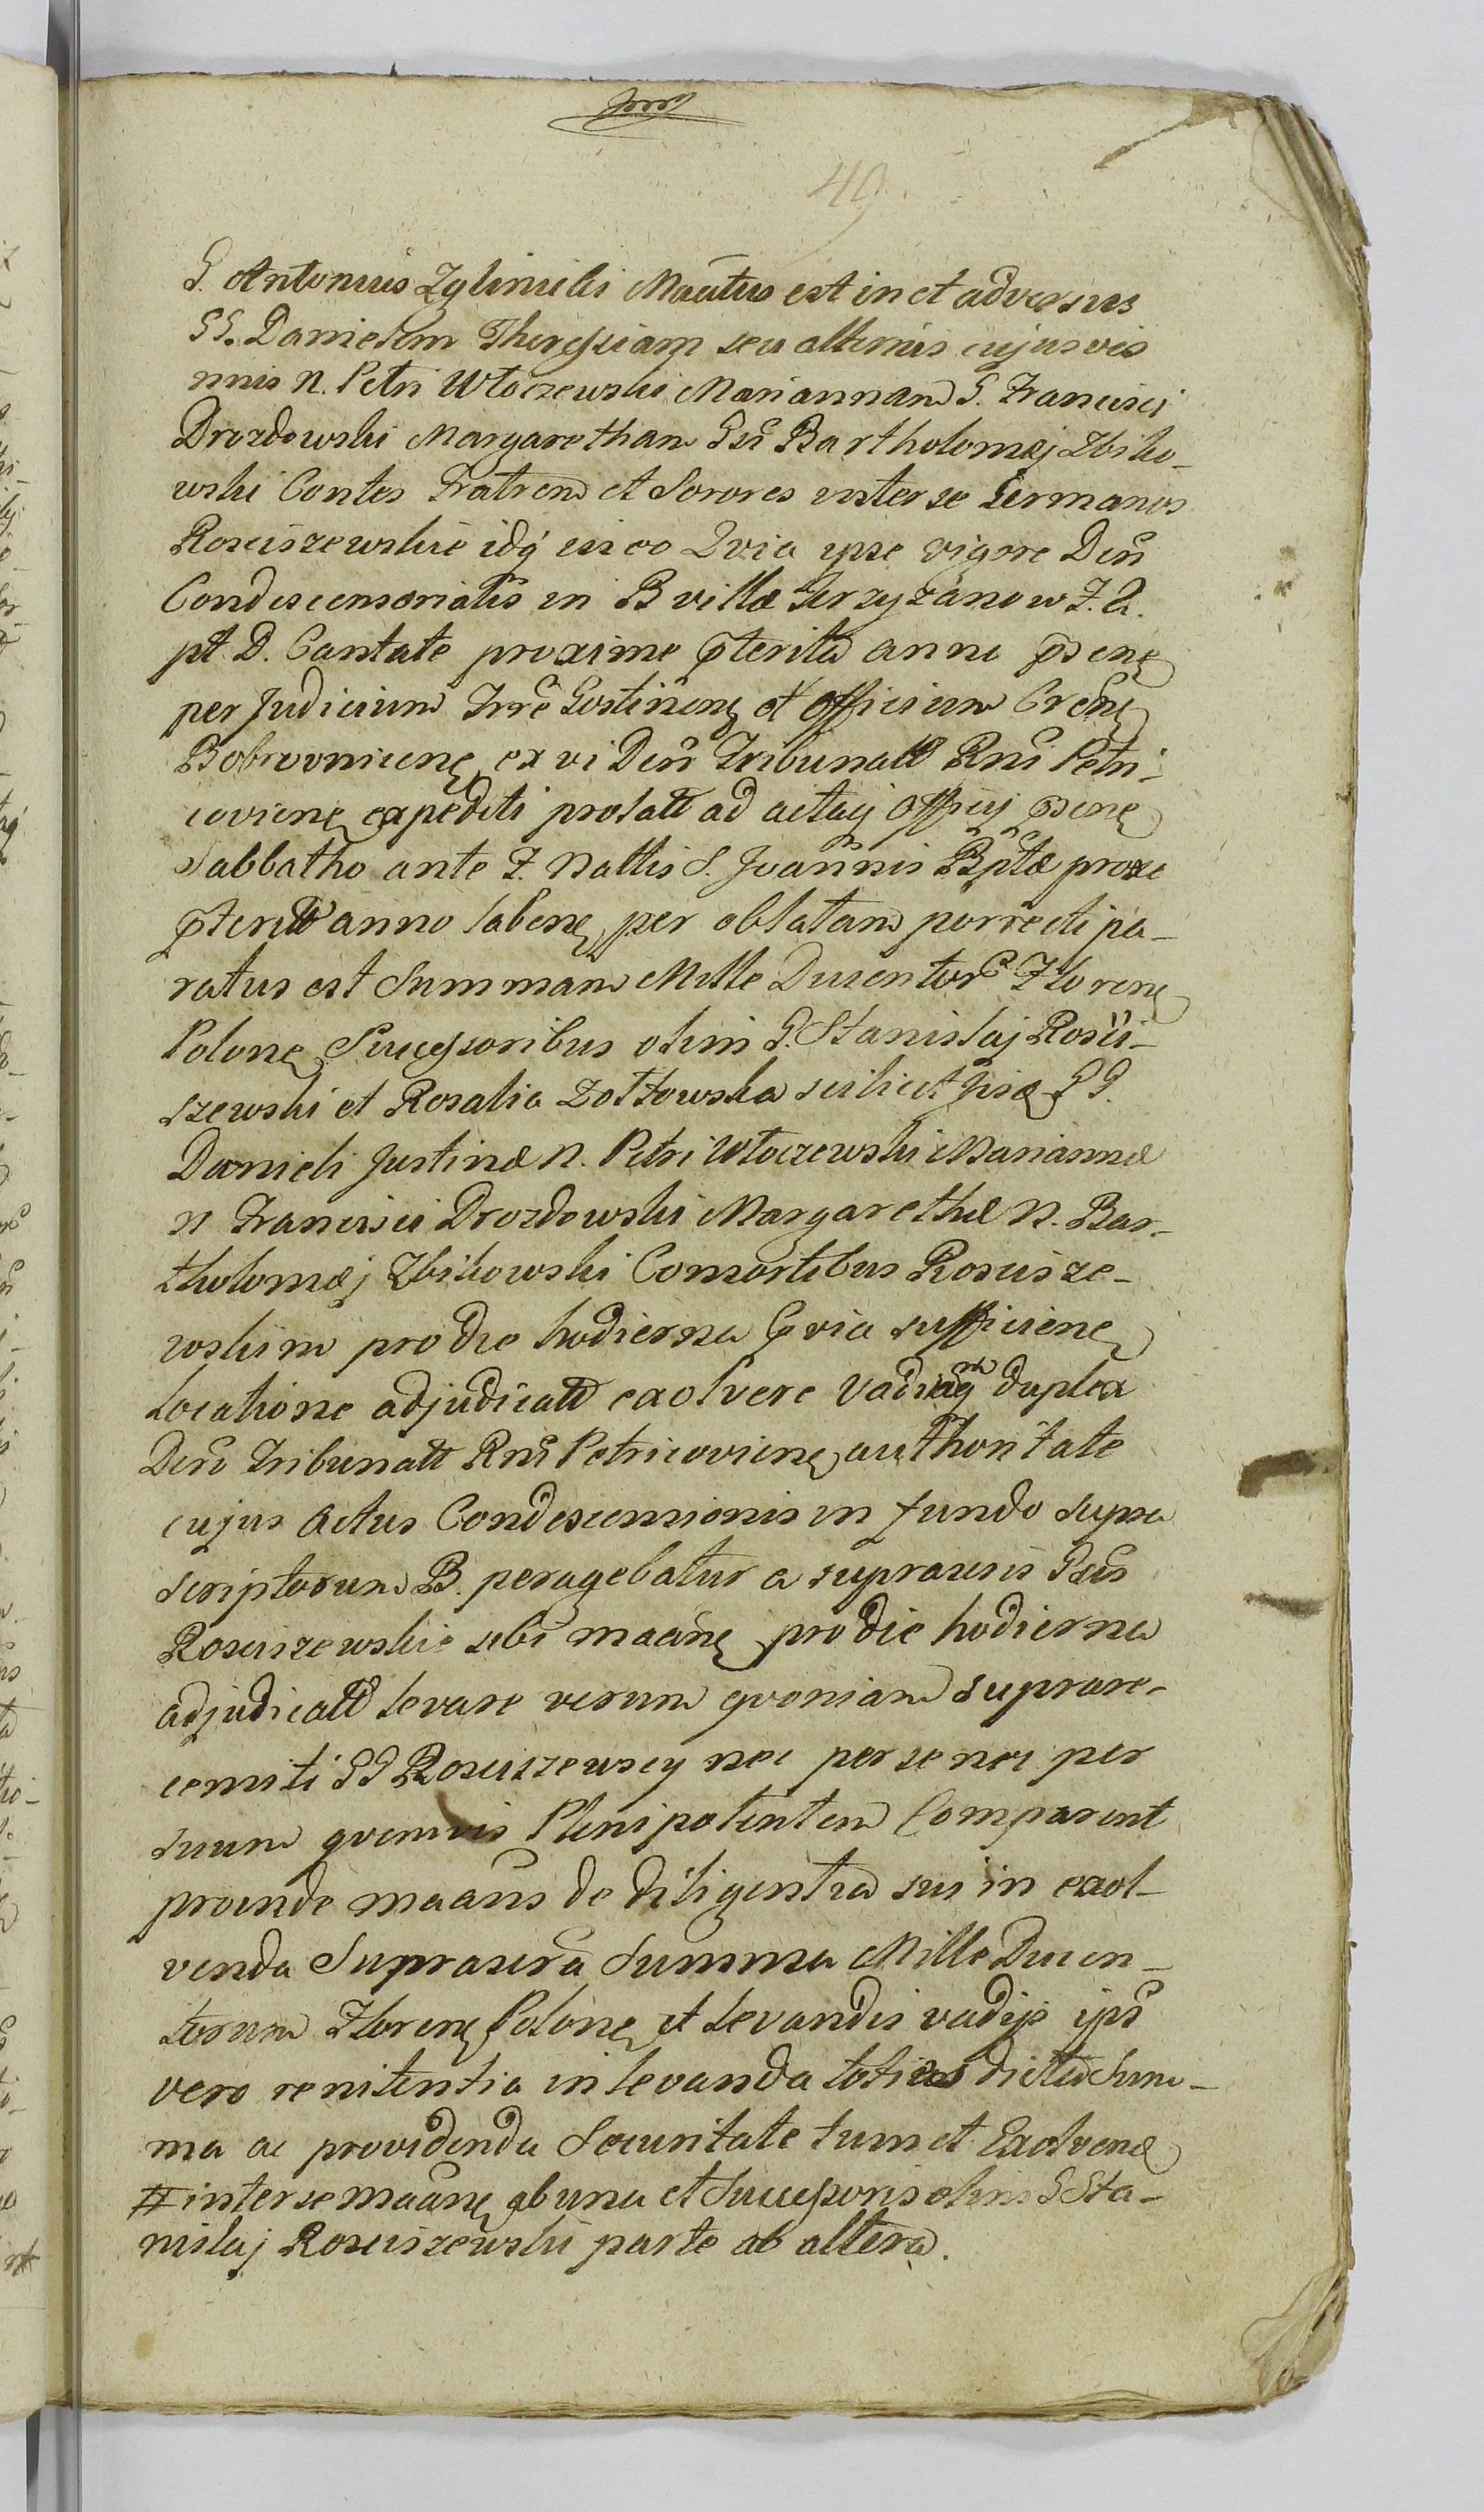 49.
G. Antonius Zglinicki Mactus est in et adversus
GG. Danielem Theressiam seu alterius cujusvis
nnis N. Petri Włoczewski Mariannam G. Francisci
Drozdowski Margaretham Gsi Bartholomæj Zbiko-
wski Contes Fratrem et Sorores inter se Germanos
Rosciszewskie idq in eo Qvia ipse vigore Dni
Condescensorialis in B villæ Krzyżanow F. 2.
pt D. Cantate proxime pterita anni psenę
per Judicium Trre Gostinenę et Officium Crense
Bobrovnicenę ex vi Dni Tribunatt Rni Petri-
covienę expediti prolatt ad actaq Officij psenę
Sabbatho ante F. Nattis S. Joannis Bptæ proxe
pteritt anno labenę per oblatam porrecti pa-
ratus est Summam Mille Ducentor Florenę
Polonę Successoribus olim G. Stanislaj Rości-
szewski et Rosalia Zottowska scilicet Gisæ GG.
Danieli Justinæ N. Petri Włoczewski Mariannæ
N Francisci Drozdowski Margarethæ N. Bar-
tholomæj Zbikowski Consortibus Roscisze-
wskim pro die hodierna pvia sufficienę
locatione adjudicatt exolvere Vadiaq duplex
Dni Tribunatt Rni Petricovienę authoritate
cujus Actus Condescensionis in fundo supra
scriptorum B. peragebatur a suprascris Gsis
Rosciszewskie sibi maanę pro die hodierna
adjudicatt levare verum qvoniam suprare-
censiti GG Rosciszewscy nec per se nec per
suum qvemvis Plenipotentem Comparent
proinde maans de diligentia sui in exol-
venda Suprascra Summa Mille Ducen-
torum Florenę Polonę et levandis vadijs ips
vero renitentia in levanda toties dicta Sum-
ma ac providenda Securitate tum et Exolvenę
# inter se maanę ab una et Successoris olim G Sta-
nislaj Rosciszewski parte ab altera.